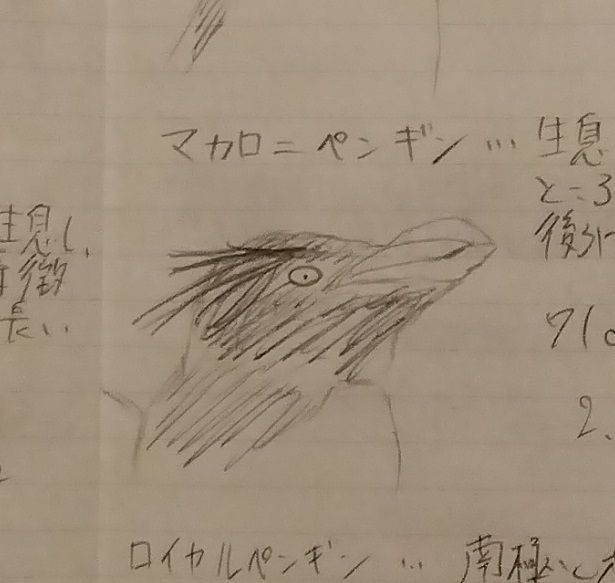 マカロニペンギン … 生息
ところ
後ろ
71c
2.
生息し、
特徴
長い
ロイヤルペンギン … 南極